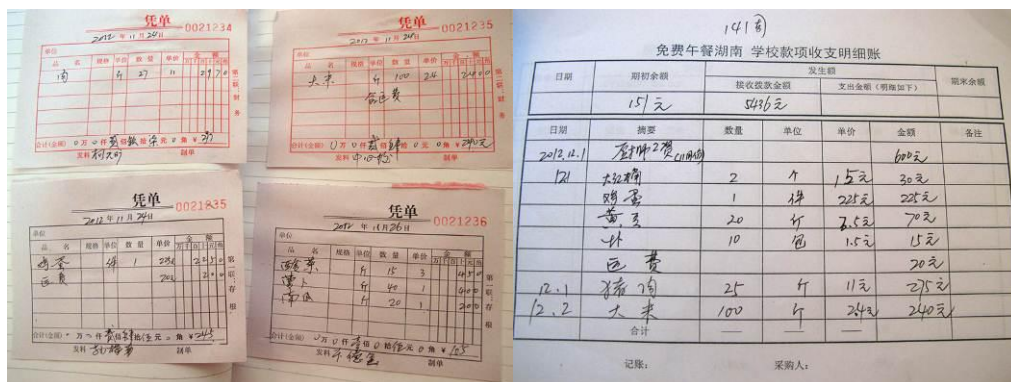 凭单
0021234
2012年11月24日
单位
品 名 规格 单位 数量 单价 金额
肉 斤 27 11 29700
合计(金额) 0万0仟贰佰玖拾柒元0角 ¥297
发料 制单
凭单
0021235
2012年11月24日
单位
品 名 规格 单位 数量 单价 金额
大米 斤 100 2.4 24000
含运费
合计(金额) 0万0仟贰佰肆拾0元0角 ¥240元
发料 中心校 制单
凭单
0021835
2012年11月24日
单位
品 名 规格 单位 数量 单价 金额
鸡蛋 件 1
运费
合计(金额) ¥245
发料 制单
凭单
0021236
2012年11月26日
单位
品 名 规格 单位 数量 单价 金额
斤 15 3 4500
萝卜 斤 40 1 4000
南瓜 斤 20 1 2000
合计(金额) 0万0仟壹佰0拾伍元0角 ¥105
发料 制单
141
免费午餐湖南 学校款项收支明细账
日期 期初余额 发生额 期末余额
接收拨款金额 支出金额(明细如下)
151元 5436元
日期 摘要 数量 单位 单价 金额 备注
2012.12.1 厨师工资 600元
12.1 2 个 15元 30元
鸡蛋 1 件 225元 225元
黄豆 20 斤 3.5元 70元
10 包 1.5元 15元
运费 20元
12.1 猪肉 25 斤 11元 275元
12.2 大米 100 斤 2.4元 240元
合计 —— ——
记账: 采购人: